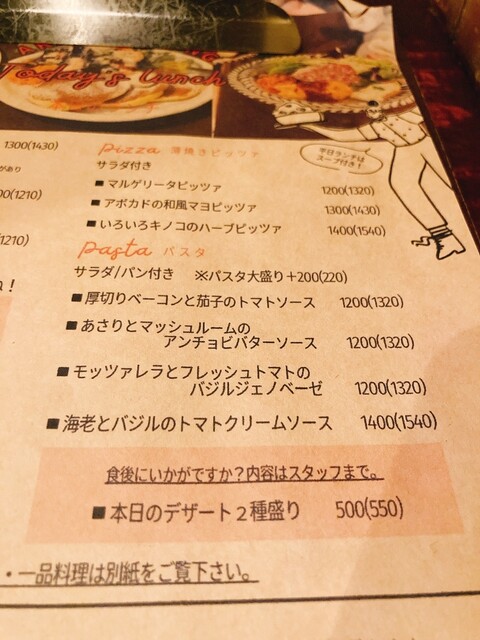 Today's Lunch
1300(1430)
があり
00(1210)
1210)
!
Pizza 薄焼きピッツァ
平日ランチは
スープ付き!
サラダ付き
■マルゲリータピッツァ 1200(1320)
■アボカドの和風マヨピッツァ 1300(1430)
■いろいろキノコのハーブピッツァ 1400(1540)
Pasta パスタ
サラダ/パン付き ※パスタ大盛り+200(220)
■厚切りベーコンと茄子のトマトソース 1200(1320)
■あさりとマッシュルームの
アンチョビバターソース 1200(1320)
■モッツァレラとフレッシュトマトの
バジルジェノベーゼ 1200(1320)
■海老とバジルのトマトクリームソース 1400(1540)
食後にいかがですか?内容はスタッフまで。
■本日のデザート2種盛り 500(550)
・一品料理は別紙をご覧下さい。